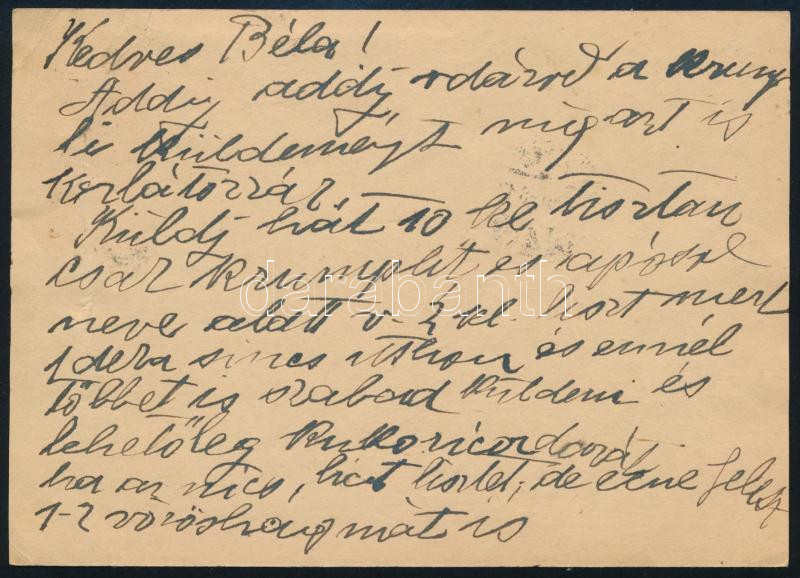 Kedves Béla!
Addig addig rdázod a krump
li küldeményt míg azt is
korlátozzák
Küldj hát 10 kl tisztán
csak krumplit és após
neve alatt v. 2 kl. liszt mert
1 deka sincs itthon és ennél
többet is szabad küldeni és
lehetőleg kukoricadarát
ha az nics, hát lisztet, de
1-2 vöröshagymát is
darabanth